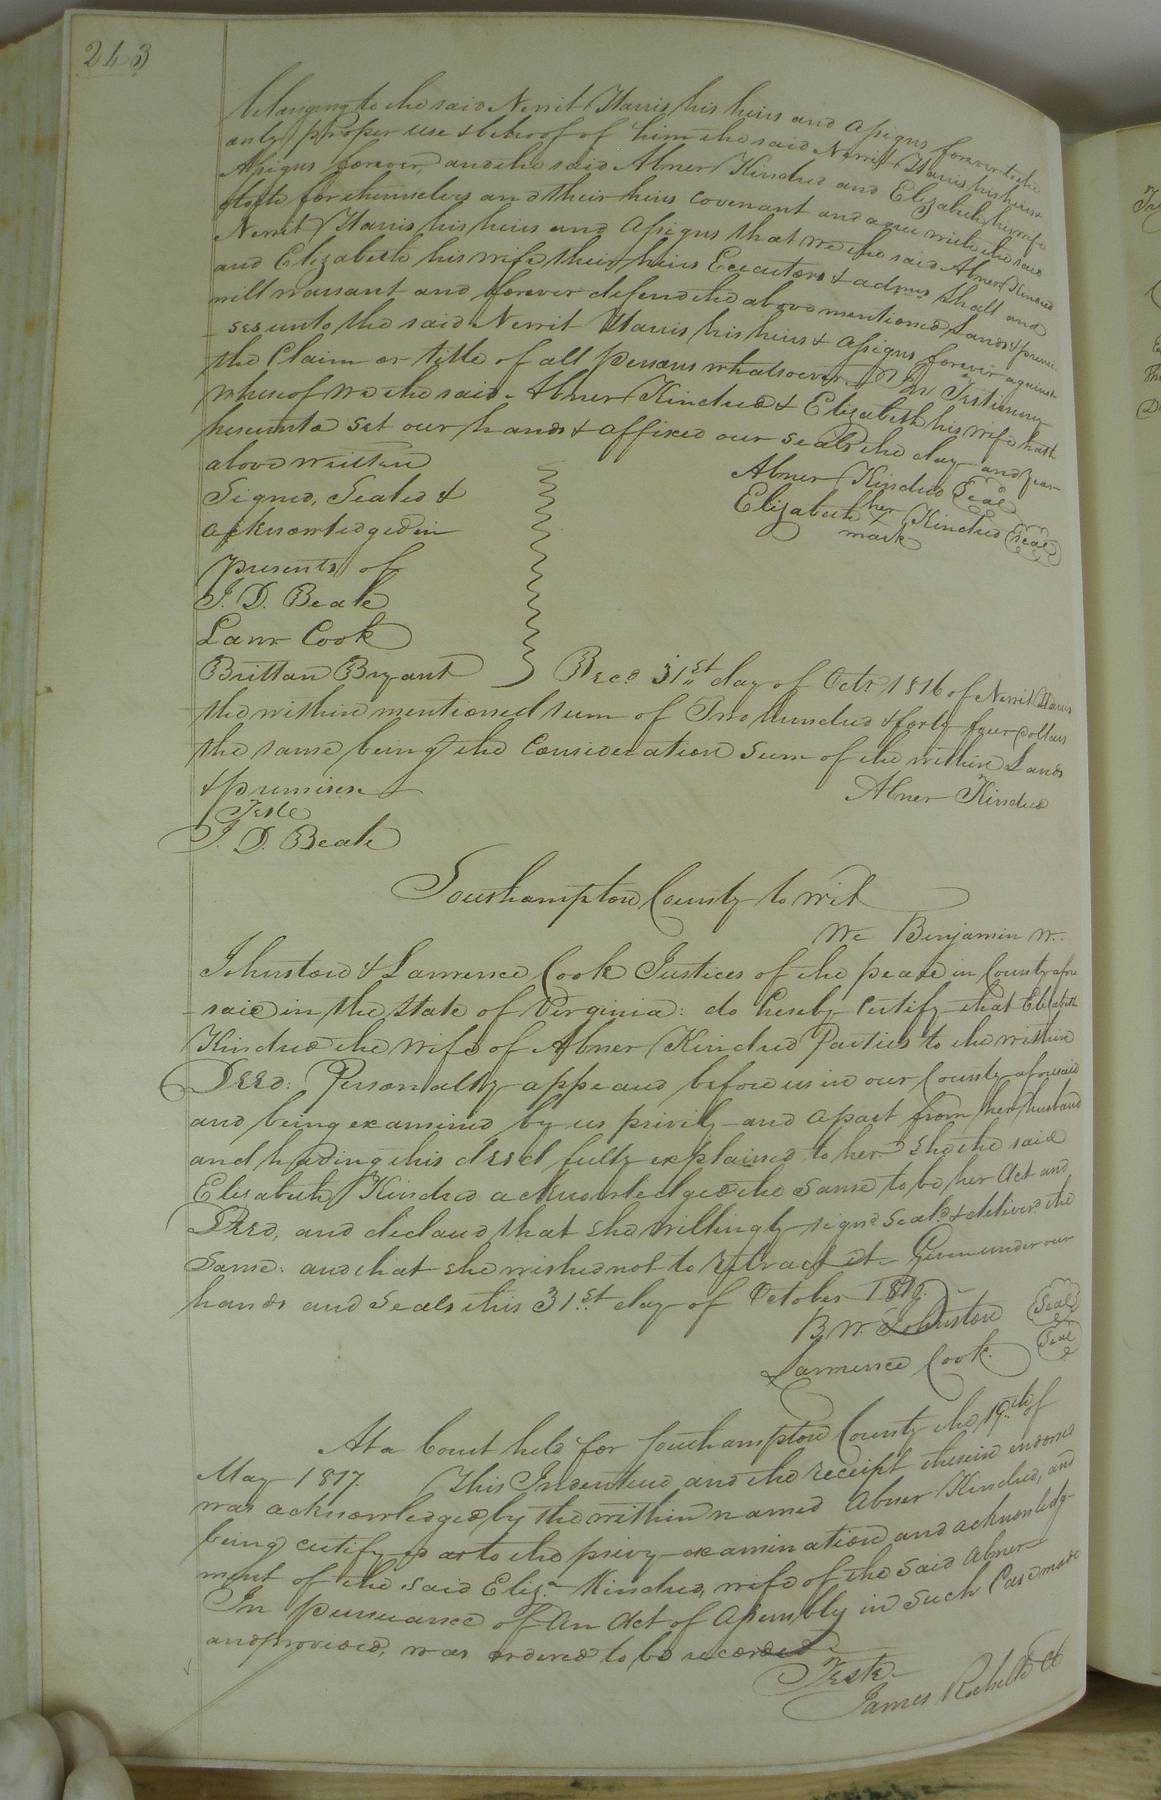 243
belonging to the said Nerrit Harris his heirs and Assigns forever to the
only proper use & behoof of him the said Nerrit Harris his heirs
Assigns forever, and the said Abner Kindred and Elizabeth his wife
doth for themselves and their heirs covenant and agree with the said
Nerrit Harris his heirs and Assigns that we the said Abner Kindred
and Elizabeth his wife, their heirs Executors & admrs shall and
will warrant and forever defend the above mentioned Lands & premi
ses unto the said Nerrit Harris his heirs & Assigns forever against
the Claim or title of all persons whatsoever. In Testimony
whereof We the said Abner Kindred & Elizabeth his wife hath
hereunto set our hands & affixed our seals the day and year
above written
Abner Kindred Seal
Signed, Sealed &
Elizabeth her Kindred Seal
mark
acknowledged in
presents of
J. D. Beale
Lawr Cook
Brittan Bryant
Recd. 31st day of Octr 1816 of Nerrit Harris
the within mentioned sum of Two hundred & forty four dollars
the same being the Consideration Sum of the within Lands
& premises
Abner Kindred
Teste
J. D. Beale
Southampton County to wit
We Benjamin W.
Johnston & Lawrence Cook Justices of the peace in County afore
said in the State of Virginia: do hereby Certify that Elizabeth
Kindred the Wife of Abner Kindred Parties to the within
Deed: Personally appeared before us in our County aforesaid
and being examined by us privily and apart from her husband
and having this deed fully explained to her She the said
Elizabeth Kindred acknowledged the Same to be her Act and
Deed, and declared that she willingly signd Seald & deliverd the
Same: and that she wished not to retract it Given under our
hands and Seals this 31st day of October
B. W. Johnston Seal
Lawrence Cook. Seal
At a Court held for Southampton County the 19th of
May 1817. This Indenture and the receipt therein indorsed
was acknowledged by the within named Abner Kindred, and
being certify'd as to the privy examination and acknowledg-
ment of the said Eliza. Kindred, wife of the Said Abner
In pursuance of An Act of Assembly in Such Case made
and provided, was ordered to be recorded
Teste
James Rochelle Ct